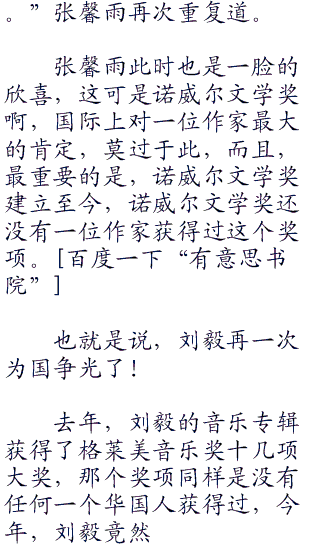 。”张馨雨再次重复道。
张馨雨此时也是一脸的
欣喜，这可是诺威尔文学奖
啊，国际上对一位作家最大
的肯定，莫过于此，而且，
最重要的是，诺威尔文学奖
建立至今，诺威尔文学奖还
没有一位作家获得过这个奖
项。[百度一下“有意思书
院”]
也就是说，刘毅再一次
为国争光了！
去年，刘毅的音乐专辑
获得了格莱美音乐奖十几项
大奖，那个奖项同样是没有
任何一个华国人获得过，今
年，刘毅竟然